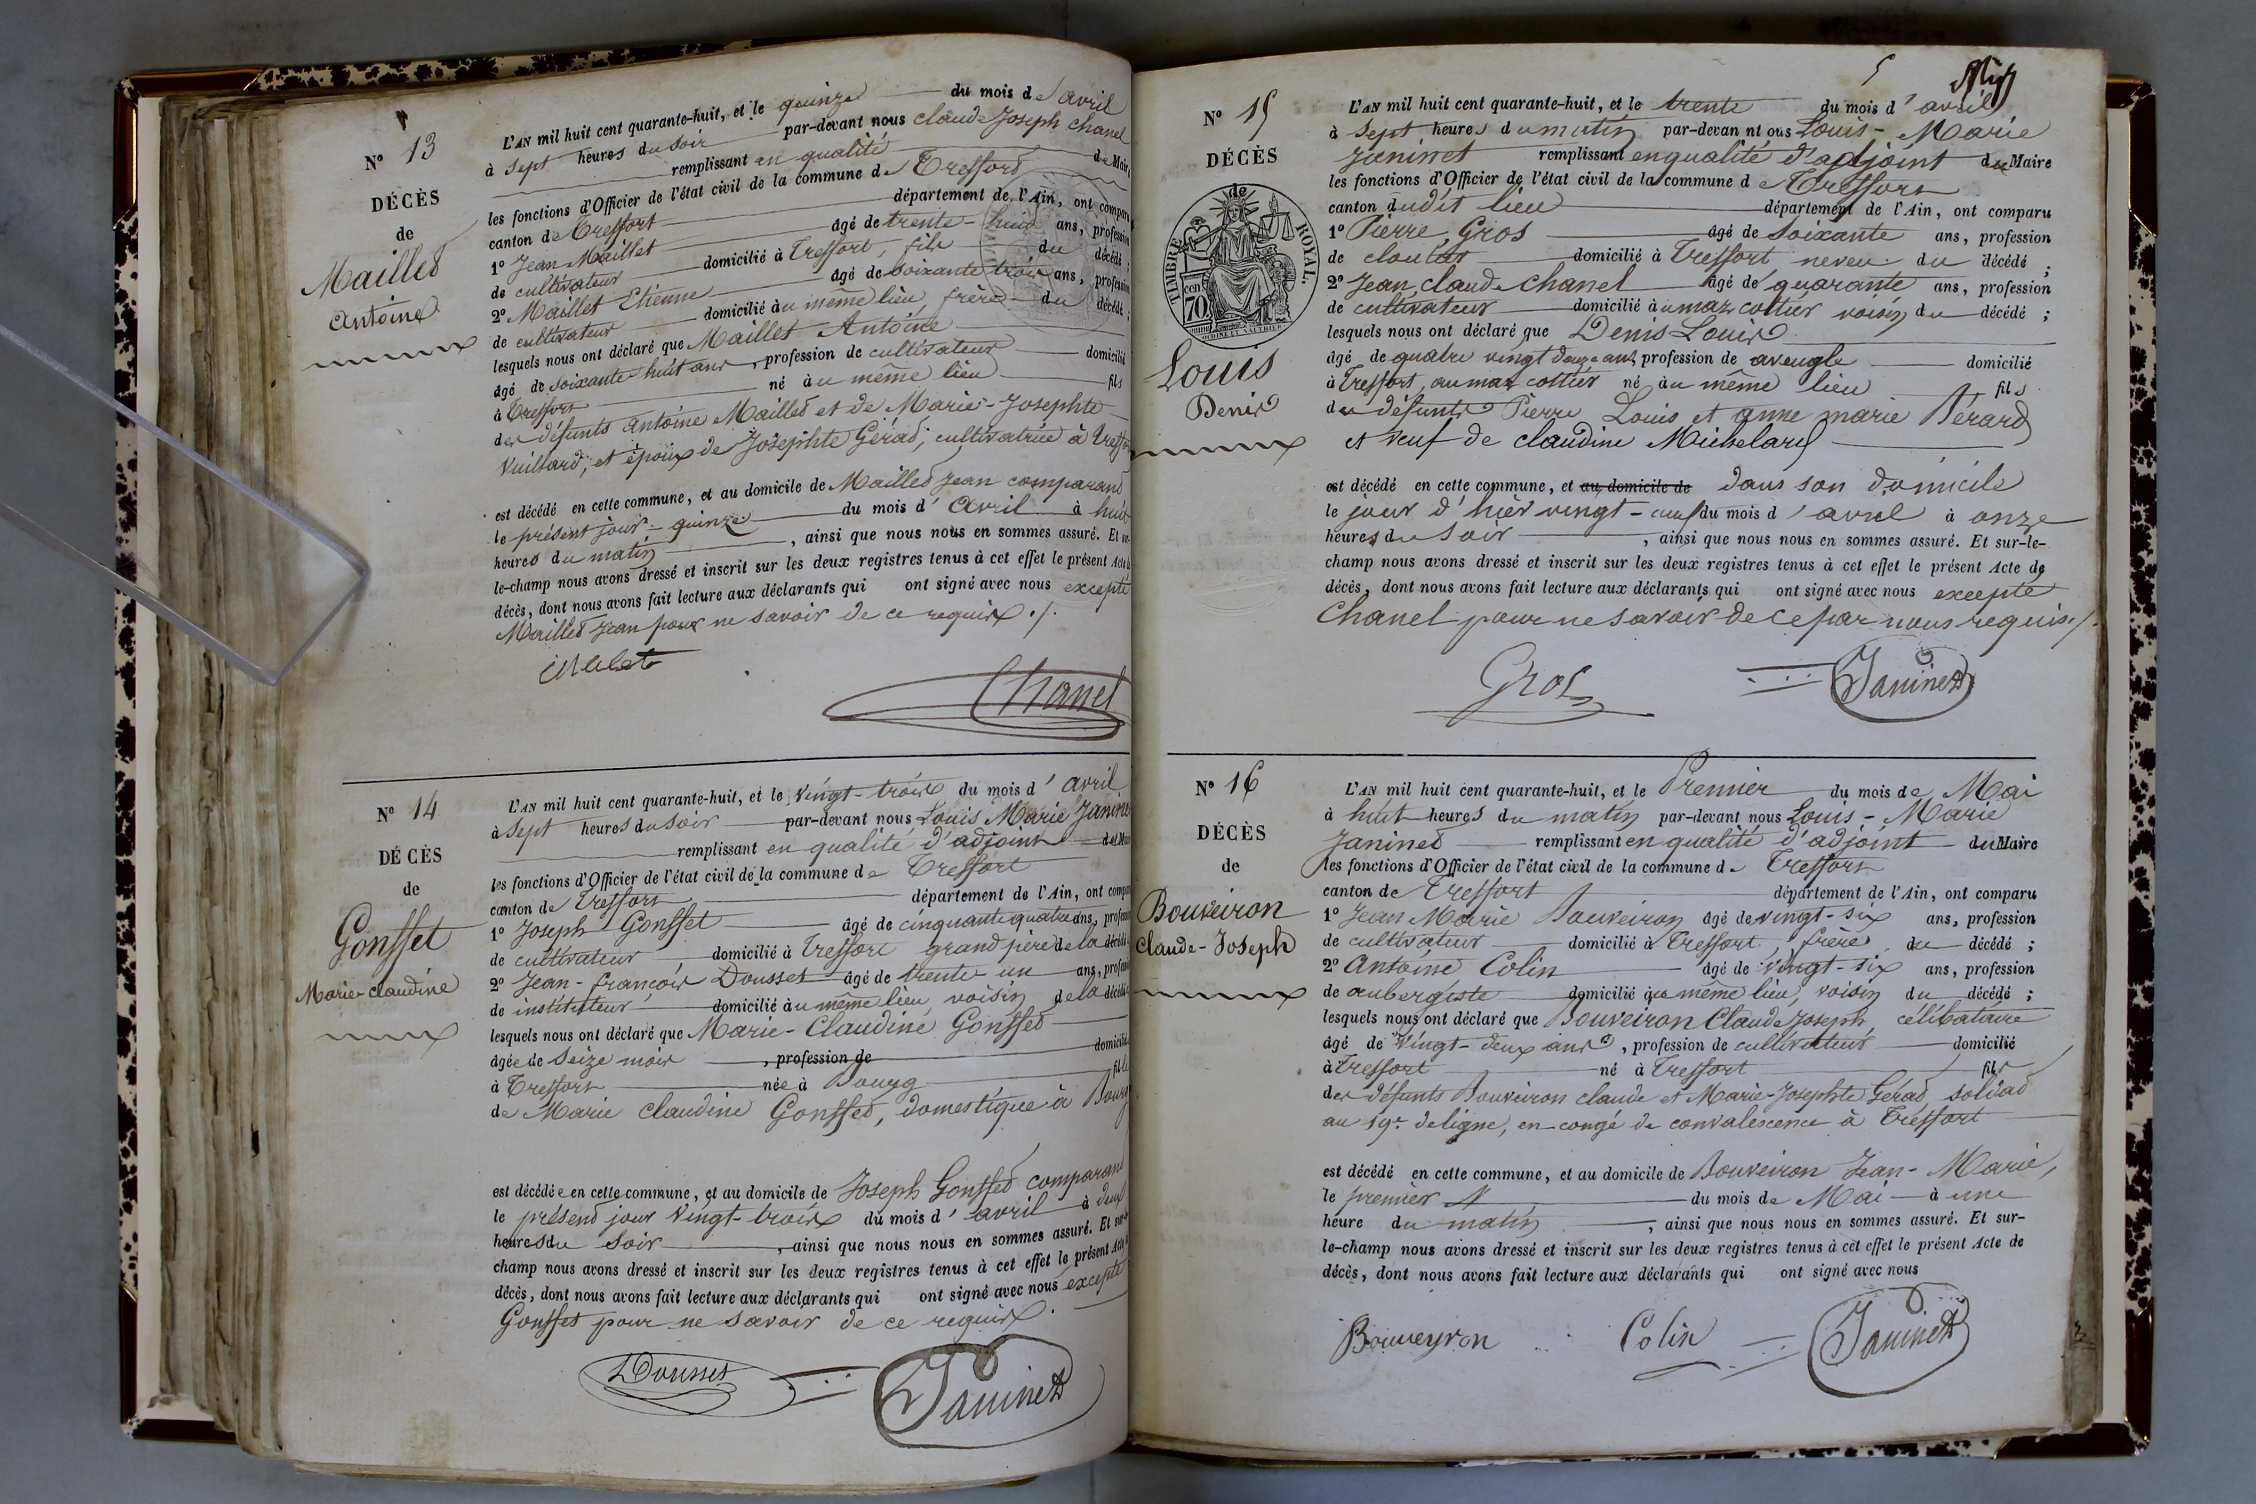 N° 13
DÉCÈS
de
Maillet
Antoine
L'AN mil huit cent quarante-huit, et le quinze du mois de avril
à sept heures du soir par-devant nous Claude Joseph Chanel
remplissant en qualité de Maire
les fonctions d'Officier de l'état civil de la commune de Treffort
canton de Treffort département de l'Ain, ont comparu
1° Jean Maillet âgé de trente-huit ans, profession
de cultivateur domicilié à Treffort, fils du décédé ;
2° Maillet Etienne âgé de soixante trois ans, profession
de cultivateur domicilié au même lieu, frère du décédé ;
lesquels nous ont déclaré que Maillet Antoine
âgé de soixante huit ans, profession de cultivateur domicilié
à Treffort né au même lieu fils
des défunts Antoine Maillet et de Marie-Josephte
Vuillard, et époux de Josephte Gérad, cultivatrice à Treffort
est décédé en cette commune, et au domicile de Maillet Jean comparant
le présent jour quinze du mois d'avril à huit
heures du matin, ainsi que nous nous en sommes assuré. Et sur-
le-champ nous avons dressé et inscrit sur les deux registres tenus à cet effet le présent Acte de
décès, dont nous avons fait lecture aux déclarants qui ont signé avec nous excepté
Maillet Jean pour ne savoir de ce requis ./.
Chanel
N° 14
DÉCÈS
de
Gonsset
Marie-Claudine
L'AN mil huit cent quarante-huit, et le vingt-trois du mois d'avril
à sept heures du soir par-devant nous Louis Marie Janinet
remplissant en qualité d'adjoint du Maire
les fonctions d'Officier de l'état civil de la commune de Treffort
canton de Treffort département de l'Ain, ont comparu
1° Joseph Gonsset âgé de cinquante quatre ans, profession
de cultivateur domicilié à Treffort grand père de la décédée
2° Jean-françois Dousset âgé de trente un ans, profession
de instituteur domicilié au même lieu, voisin de la décédée
lesquels nous ont déclaré que Marie-Claudine Gonsset
âgée de seize mois, profession de domicilié
à Treffort née à Bourg fille
de Marie Claudine Gonsset, domestique à Bourg
est décédée en cette commune, et au domicile de Joseph Gonsset comparant
le présent jour vingt-trois du mois d'avril à deux
heures du soir, ainsi que nous nous en sommes assuré. Et sur-le-
champ nous avons dressé et inscrit sur les deux registres tenus à cet effet le présent Acte de
décès, dont nous avons fait lecture aux déclarants qui ont signé avec nous excepté
Gonsset pour ne savoir de ce requis.
Dousset Janinet
5
N° 15
DÉCÈS
de
TIMBRE ROYAL.
70 cen
Louis
Denis
L'AN mil huit cent quarante-huit, et le trente du mois d'avril
à sept heures du matin par-devan nt ous Louis-Marie
Janinet remplissant en qualité d'adjoint du Maire
les fonctions d'Officier de l'état civil de la commune de Treffort
canton dudit lieu département de l'Ain, ont comparu
1° Pierre Gros âgé de soixante ans, profession
de cloutier domicilié à Treffort neveu du décédé ;
2° Jean Claude Chanel âgé de quarante ans, profession
de cultivateur domicilié au maz cottier voisin du décédé ;
lesquels nous ont déclaré que Denis Louis
âgé de quatre vingt douze ans, profession de aveugle domicilié
à Treffort, au maz cottier né au même lieu fils
des défunts Pierre Louis et anne marie Bérard
et veuf de claudine Michelard
est décédé en cette commune, et au domicile de dans son domicile
le jour d'hier vingt-neuf du mois d'avril à onze
heures du soir, ainsi que nous nous en sommes assuré. Et sur-le-
champ nous avons dressé et inscrit sur les deux registres tenus à cet effet le présent Acte de
décès, dont nous avons fait lecture aux déclarants qui ont signé avec nous excepté
Chanel pour ne savoir de ce par nous requis ./.
Gros Janinet
N° 16
DÉCÈS
de
Bouveiron
Claude-Joseph
L'AN mil huit cent quarante-huit, et le Premier du mois de Mai
à huit heures du matin par-devant nous Louis-Marie
Janinet remplissant en qualité d'adjoint du Maire
les fonctions d'Officier de l'état civil de la commune de Treffort
canton de Treffort département de l'Ain, ont comparu
1° Jean Marie Bouveiron âgé de vingt-six ans, profession
de cultivateur domicilié à Treffort, frère du décédé ;
2° Antoine Colin âgé de vingt-six ans, profession
de aubergiste domicilié au même lieu, voisin du décédé ;
lesquels nous ont déclaré que Bouveiron Claude Joseph, célibataire
âgé de vingt-deux ans, profession de cultivateur domicilié
à Treffort né à Treffort fils
des défunts Bouveiron Claude et Marie-Josephte Gérad, soldat
au 19e de ligne, en congé de convalescence à Treffort
est décédé en cette commune, et au domicile de Bouveiron Jean-Marie,
le premier du mois de Mai à une
heure du matin, ainsi que nous nous en sommes assuré. Et sur-
le-champ nous avons dressé et inscrit sur les deux registres tenus à cet effet le présent Acte de
décès, dont nous avons fait lecture aux déclarants qui ont signé avec nous
Bouveyron Colin Janinet